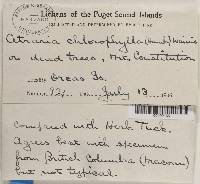 Lichens of the Puget Sound Islands
Cetraria chlorophylla (Humb.) Wainio
on dead trees, Mt. Constitution
Orcas Is.
July 13
Compared with Herb. Tuck.
Agrees best with specimen
from British Columbia (Macoun)
but not typical.